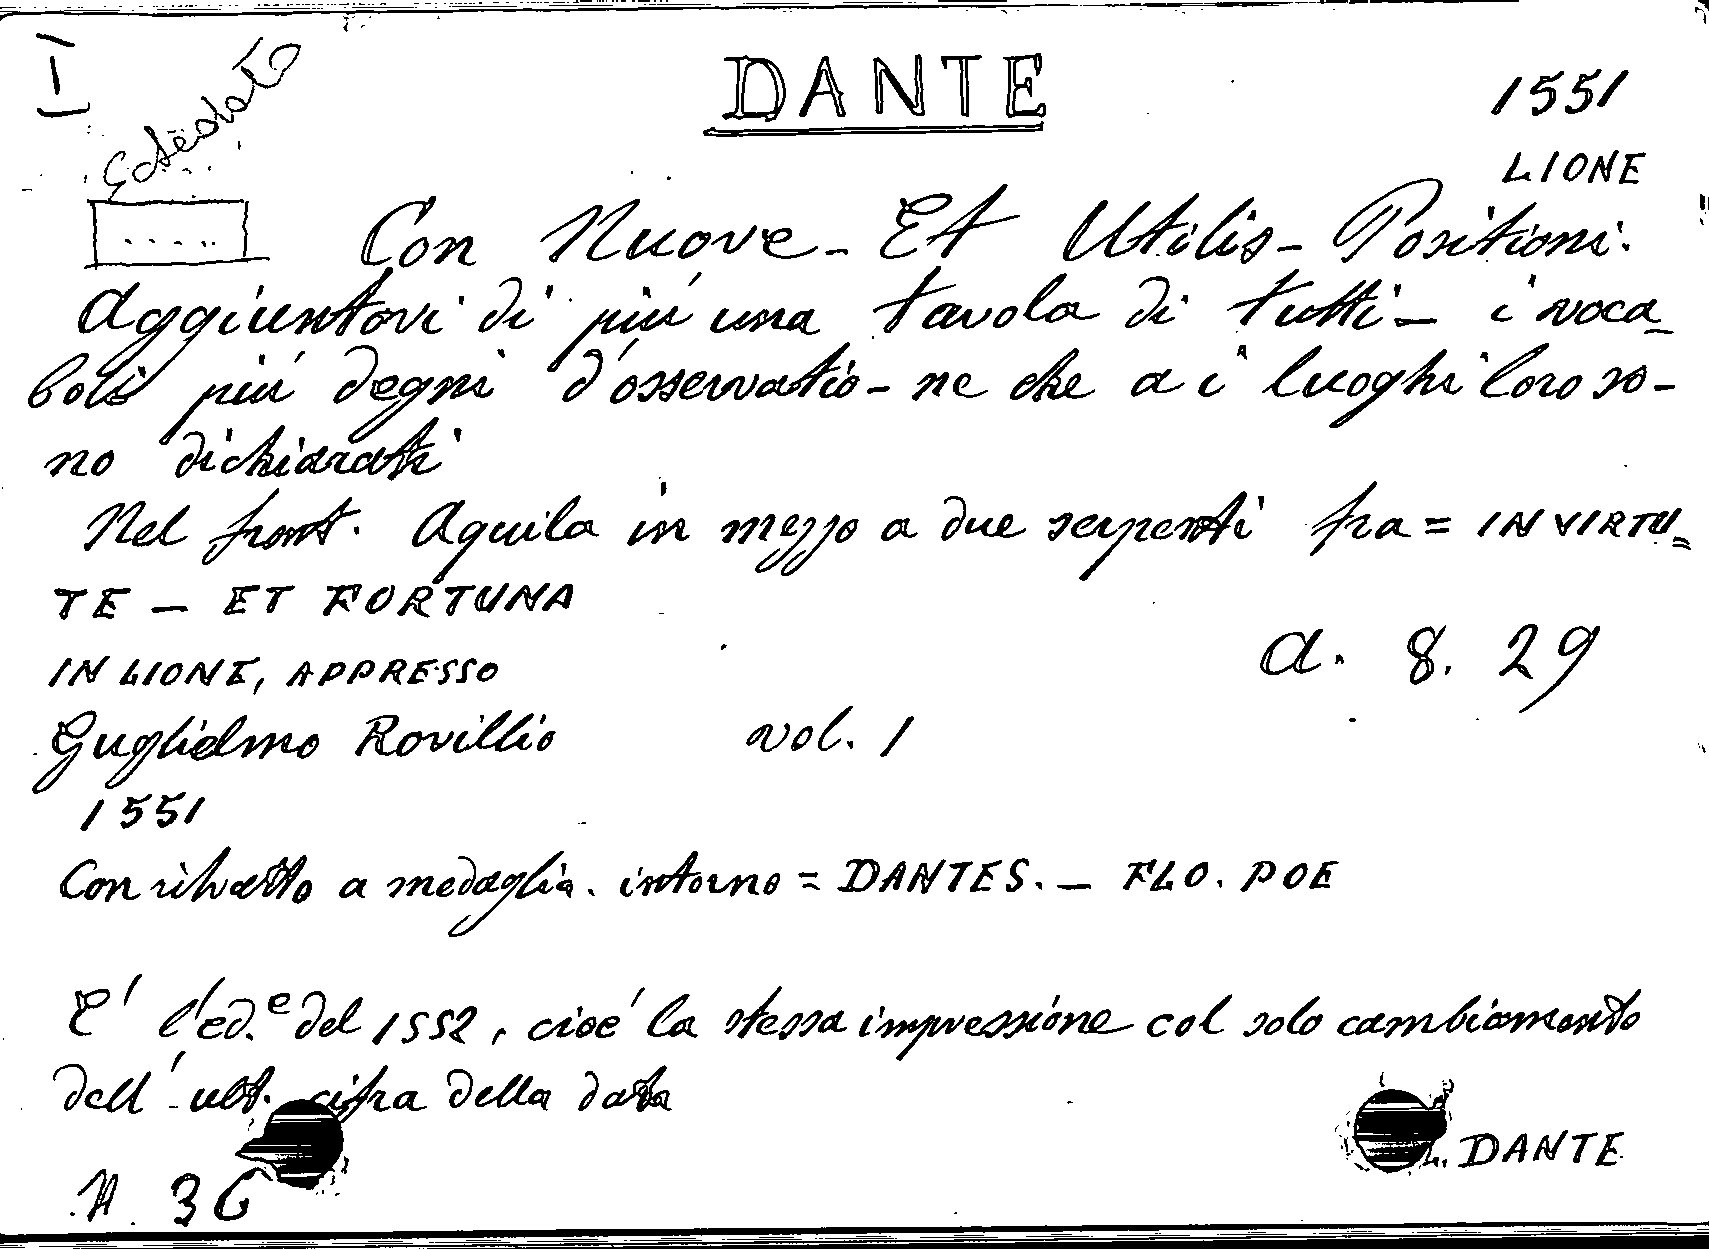 I
DANTE
1551
LIONE
Con Nuove - Et Utilis - Positioni.
Aggiuntovi di piú una tavola di tutti - i voca_
boli piú degni d'osservatio - ne che a i luoghi loro so -
no dichiarati
Nel front. Aquila in mezzo a due serpenti fra = IN VIRTU=
TE - ET FORTUNA
IN LIONE, APPRESSO
a. 8. 29
Guglielmo Rovillio vol. 1
1551
Con ritratto a medaglia. intorno = DANTES. - FLO. POE
E' l'ed.e del 1552, cioé la stessa impressione col solo cambiamento
dell'ult. cifra della data
DANTE
N. 36